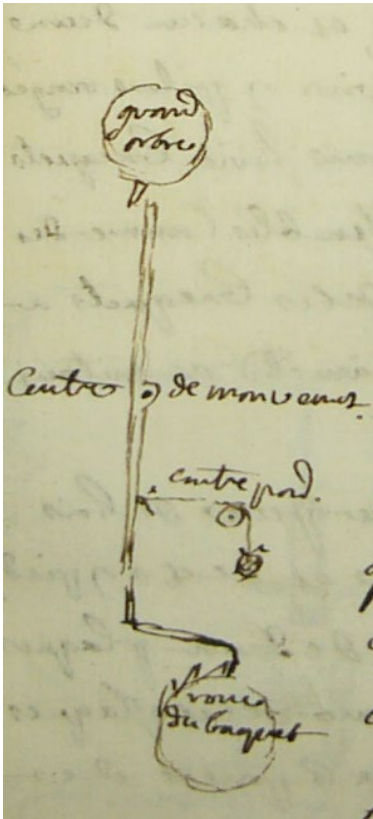 grand
arbre
Centre de mouvement.
contre poid.
roue
du baquet